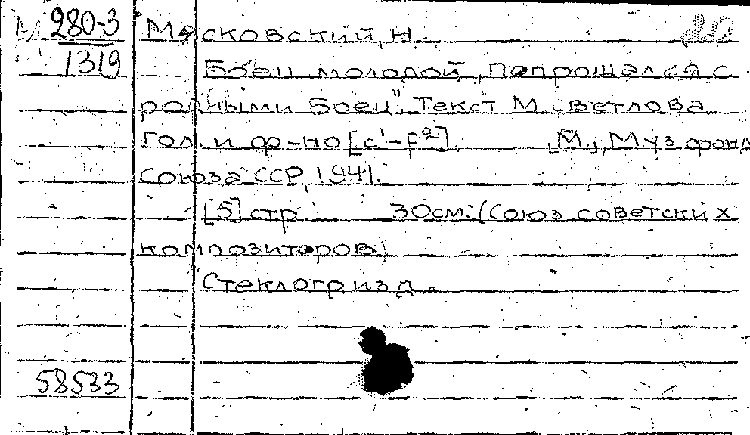 М 280-3 Мясковский, Н. 20
1319 Боец молодой, попрощался с
родными Боец". Текст М. Светлова
Гол. и ф-но [c¹-f²]. М., Музфонд
Союза ССР, 1941.
[5] стр 30см. (Союз советских
композиторов)
Стеклогр. изд.
58533